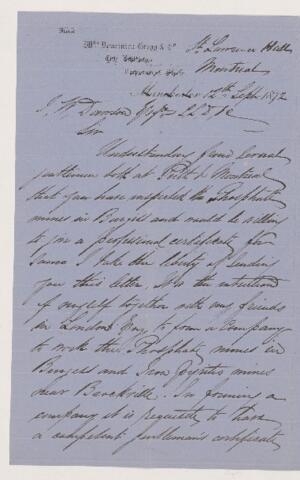 St. Lawrence Hall
Montreal
Manchester 12th Sept 1872
Sir
Understanding from several
gentlemen both at Perth & Montreal
that you have inspected the Phosphate
mines in Burgess and would be willing
to give a professional certificate for
same I take the liberty of sending
you this letter. It is the intention
of myself together with my friends
in London Eng to form a Company
to work the Phosphate mines in
Burgess and Iron Pyrites mines
near Brockville. In forming a
company it is requisite to have
a competent gentleman's certificate